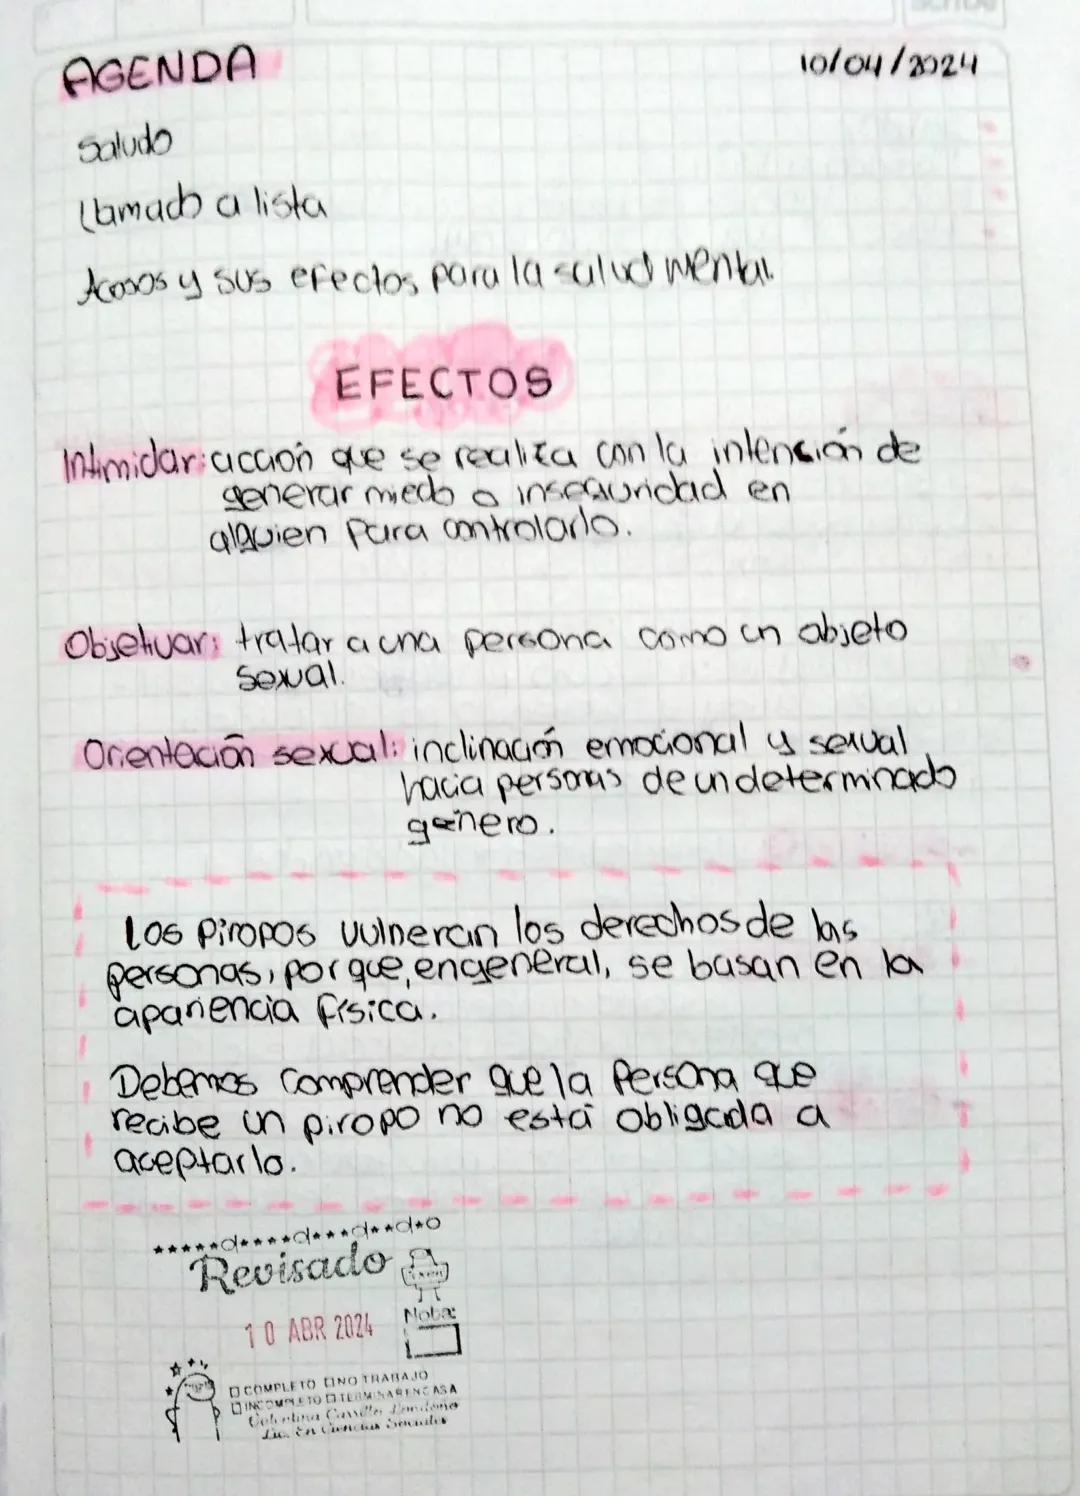 AGENDA
10/04/2024
Saludo
Llamado a lista
Acosos y sus efectos para la salud mental.
EFECTOS
Intimidar: acción que se realiza con la intención de
generar miedo o inseguridad en
alguien para controlarlo.
Objetivar: tratar a una persona como un objeto
sexual.
Orientación sexual: inclinación emocional y sexual
hacia personas de un determinado
género.
Los Piropos vulneran los derechos de las
personas, porque, en general, se basan en la
apariencia física.
Debemos comprender que la Persona que
recibe un piropo no está obligada a
aceptarlo.
Revisado
10 ABR 2024
Nota:
COMPLETO NO TRABAJO
INCOMPLETO TERMINAR EN CASA
Lic. En Ciencias Sociales